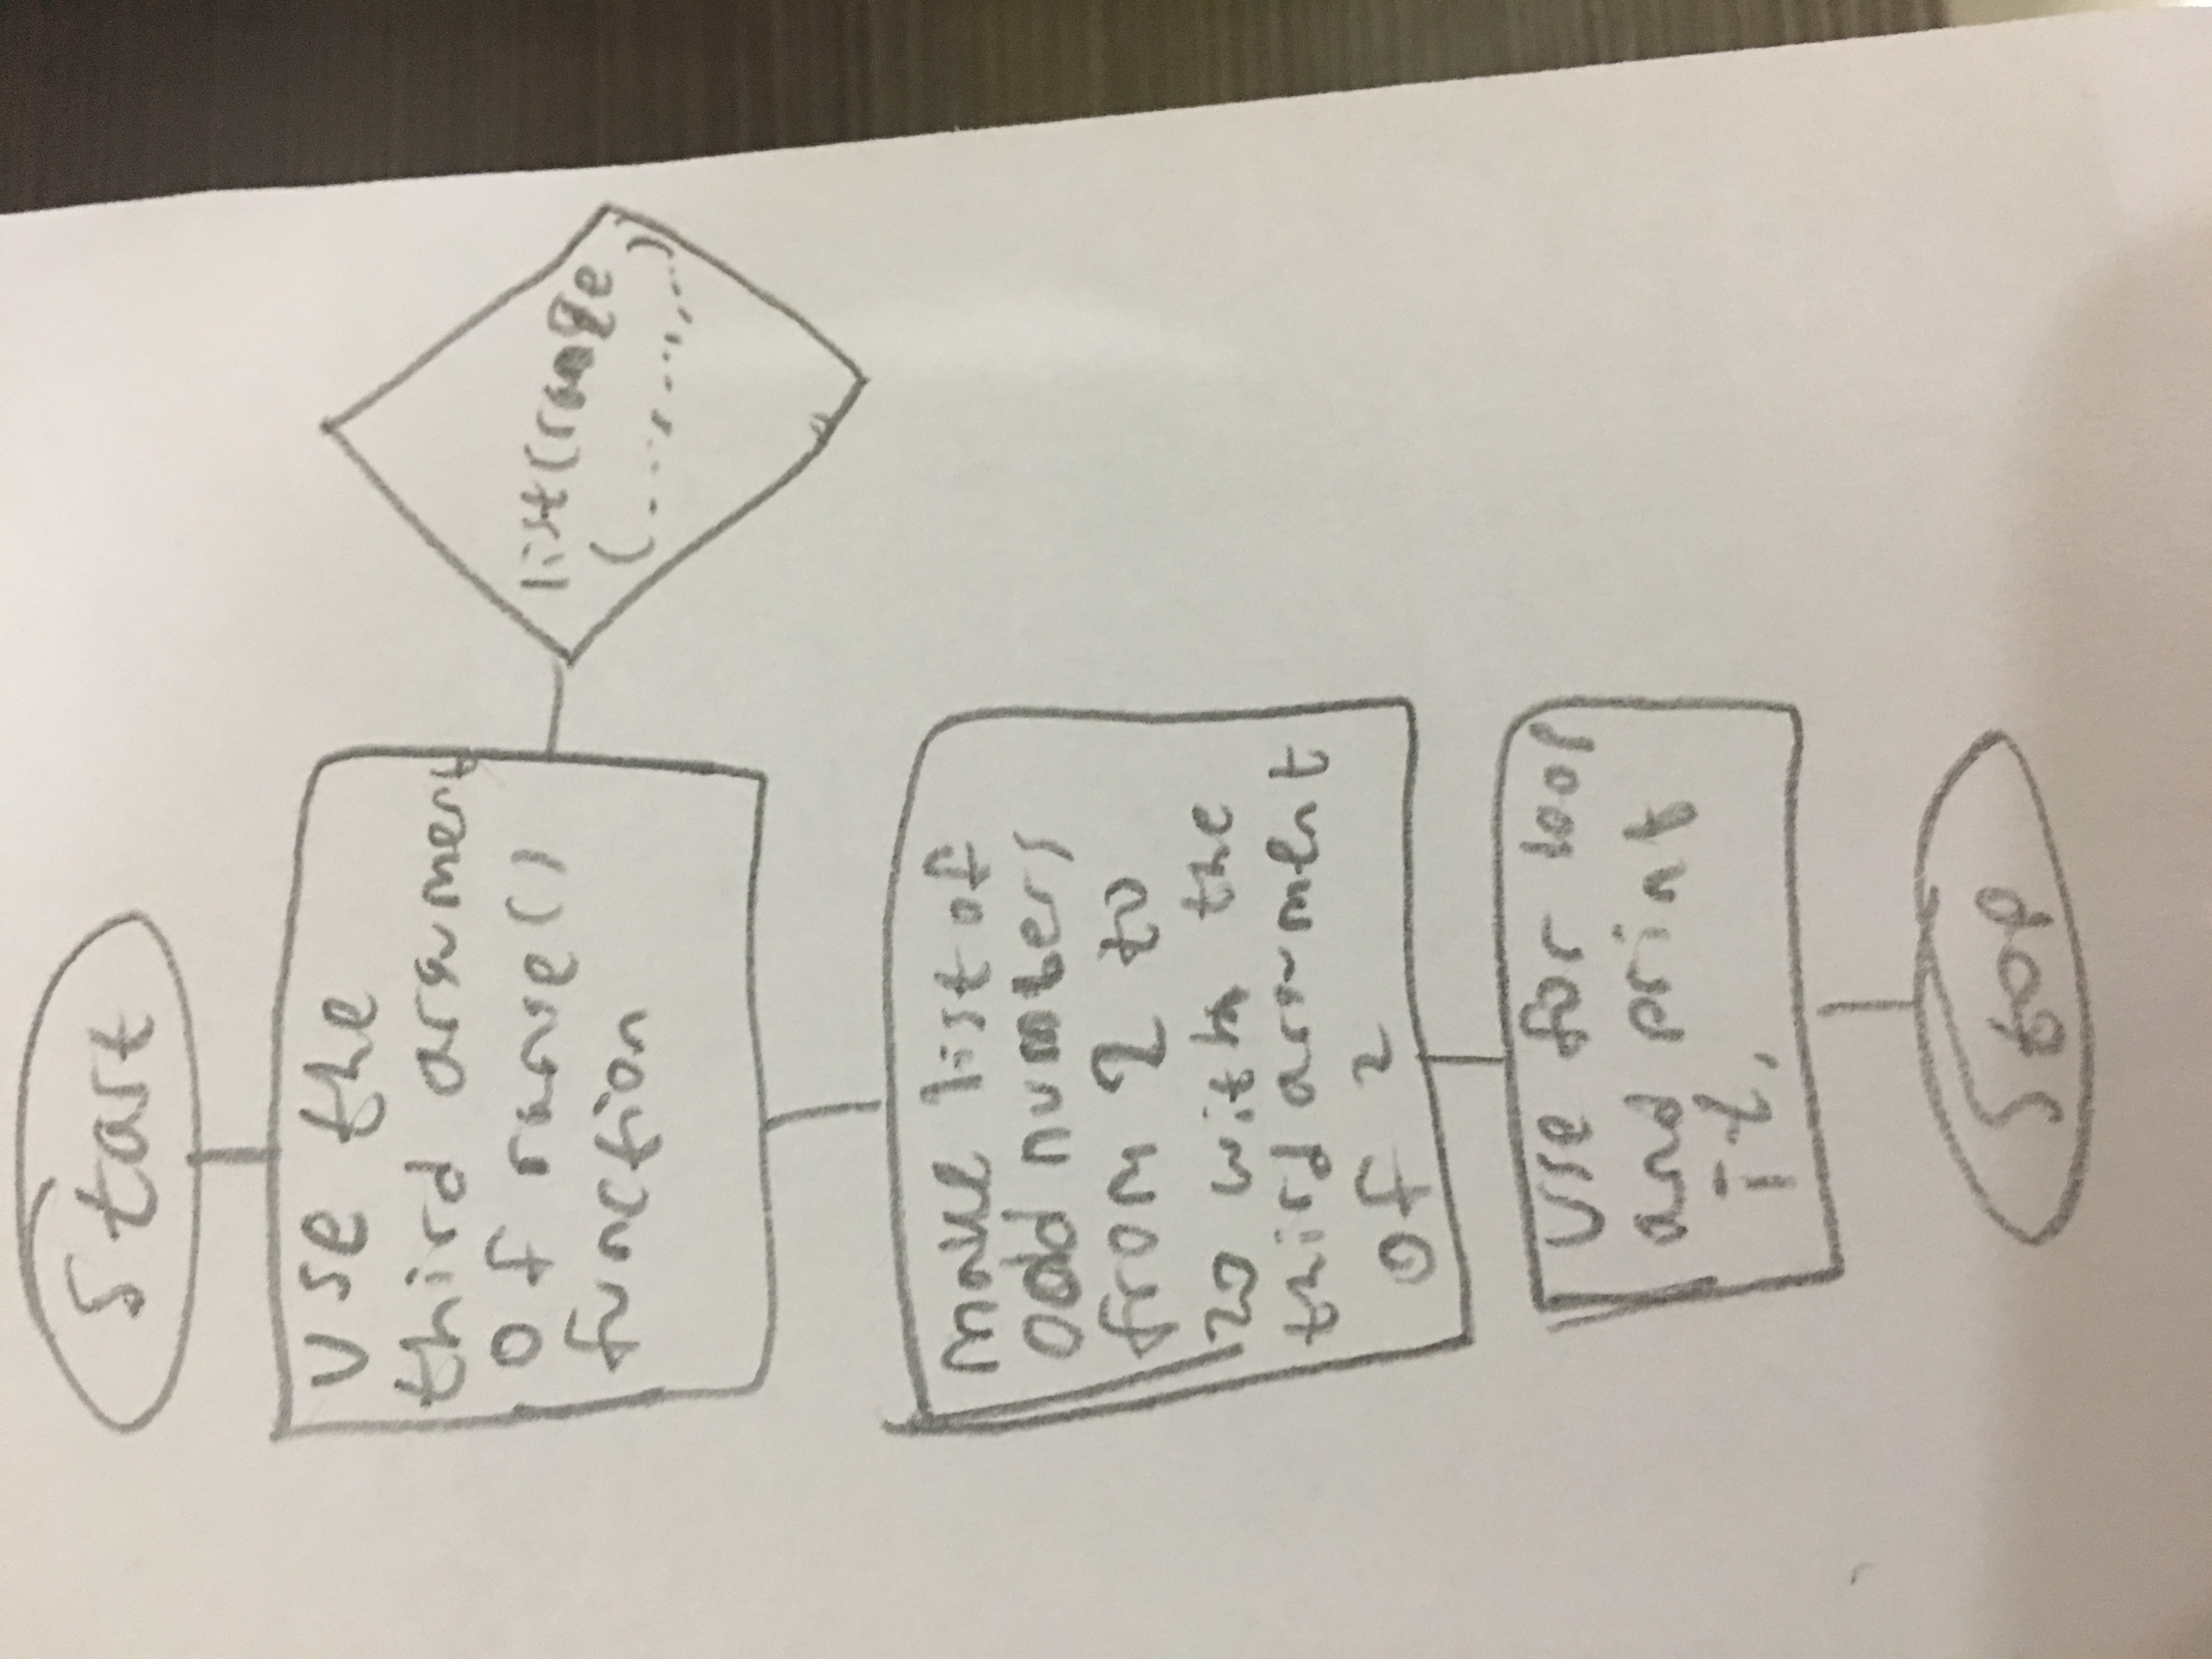 Start
use the
third argument
of range()
function
list(range
(...,...,...)
make list of
odd numbers
from 2 to
20 with the
third argument
of 2
use for loop
and print
it.
Stop